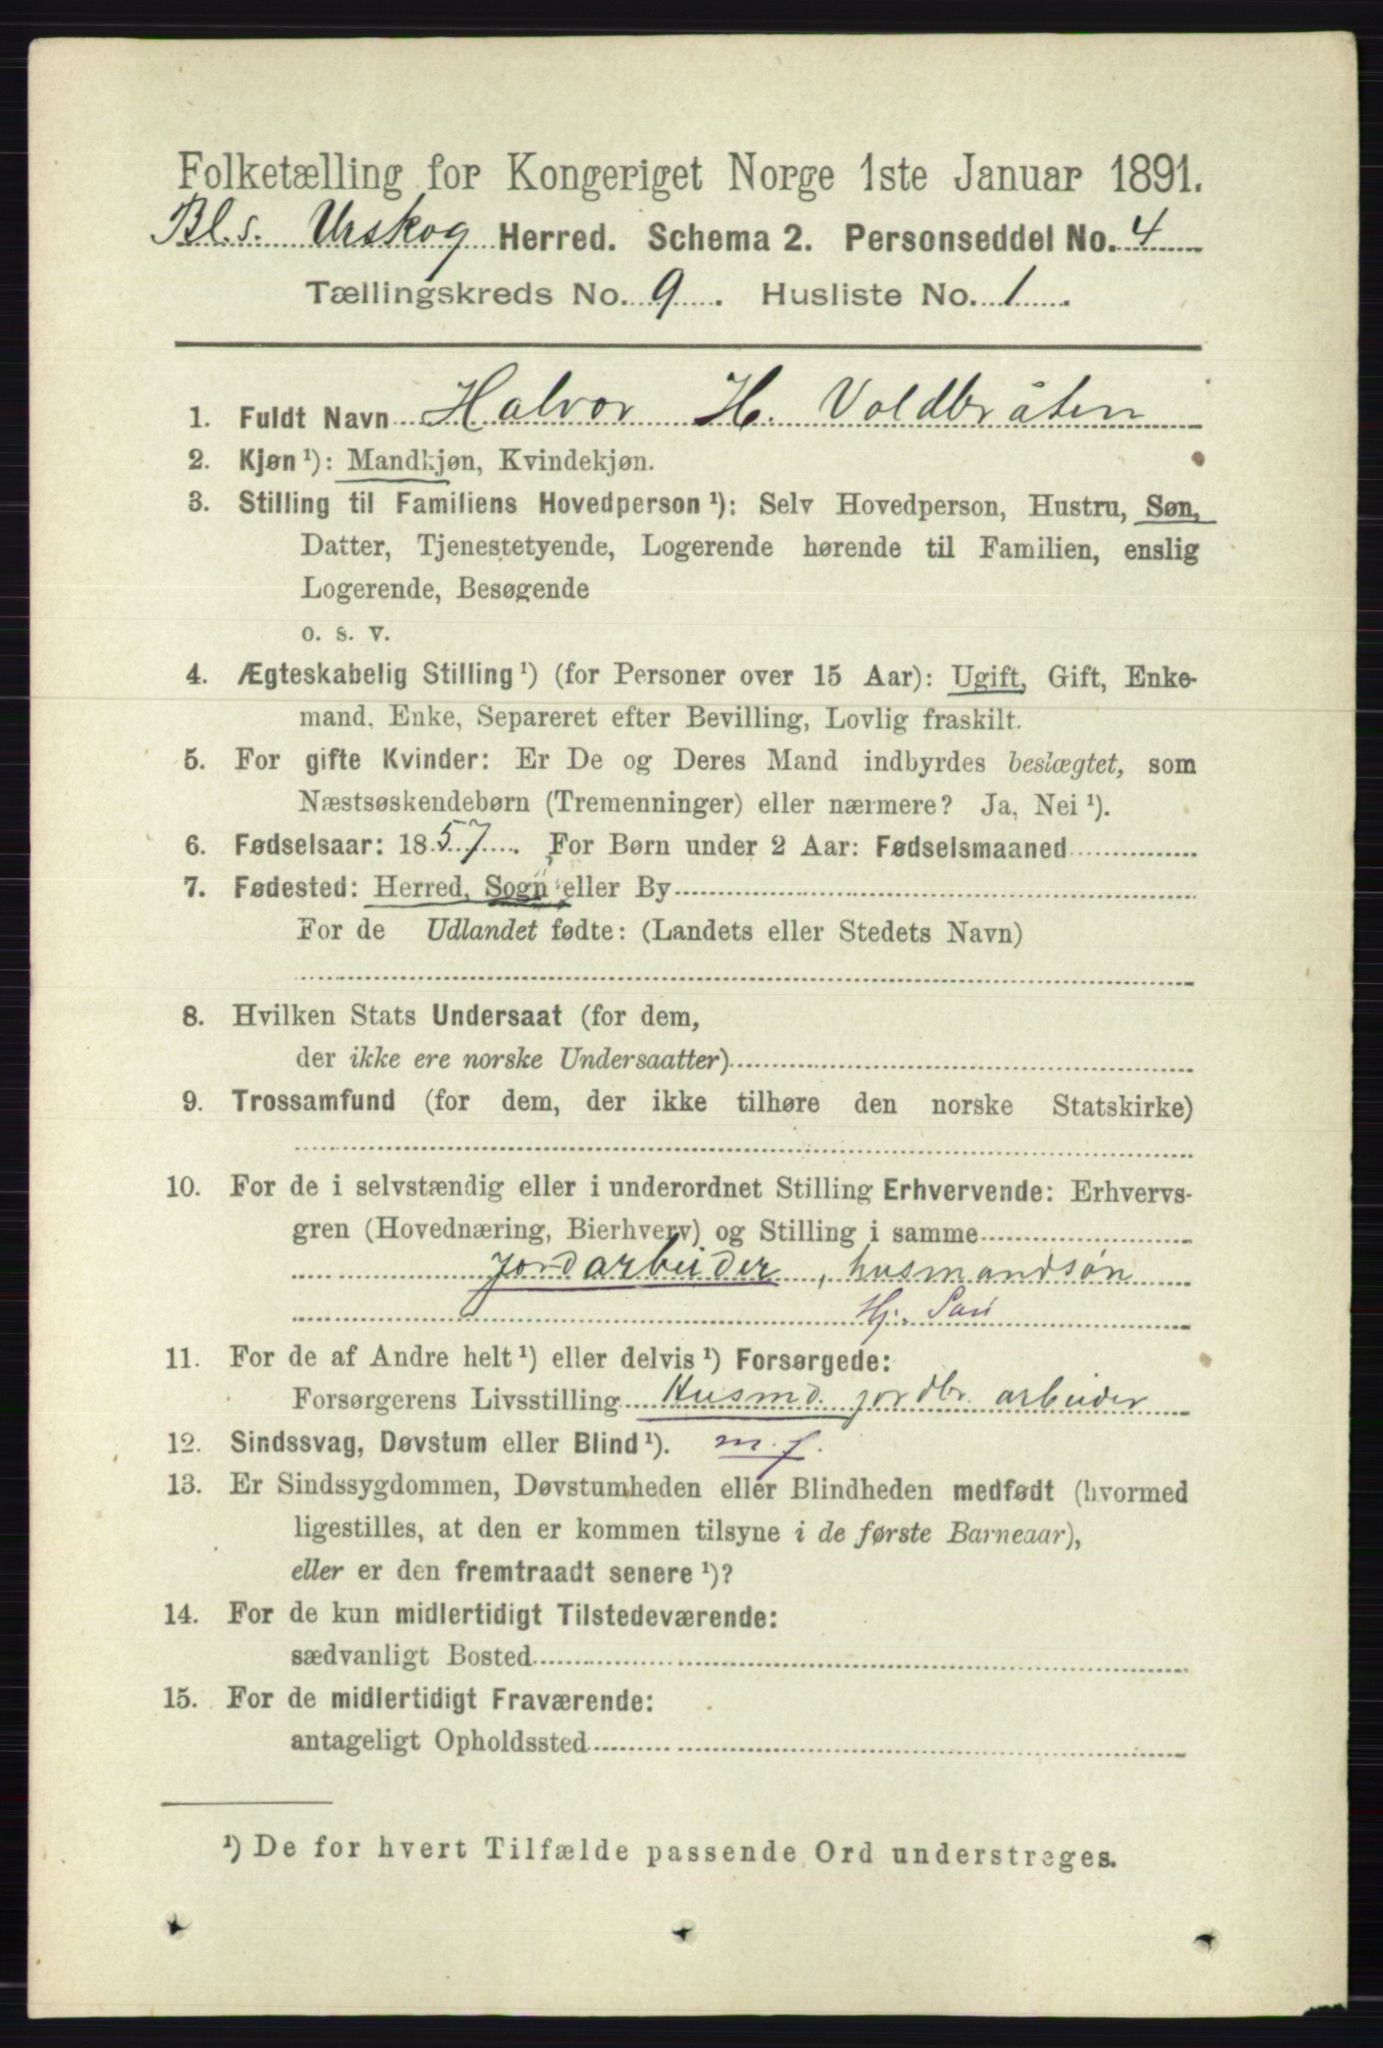 Folketælling for Kongeriget Norge 1ste Januar 1891.
Bl.s. Urskog Herred. Schema 2. Personseddel No. 4
Tællingskreds No. 9. Husliste No. 1.
1. Fuldt Navn Halvor H. Voldbråten
2. Kjøn¹): Mandkjøn, Kvindekjøn.
3. Stilling til Familiens Hovedperson¹): Selv Hovedperson, Hustru, Søn,
Datter, Tjenestetyende, Logerende hørende til Familien, enslig
Logerende, Besøgende
o. s. v.
4. Ægteskabelig Stilling¹) (for Personer over 15 Aar): Ugift, Gift, Enke-
mand, Enke, Separeret efter Bevilling, Lovlig fraskilt.
5. For gifte Kvinder: Er De og Deres Mand indbyrdes beslægtet, som
Næstsøskendebørn (Tremenninger) eller nærmere? Ja, Nei¹).
6. Fødselsaar: 1857. For Børn under 2 Aar: Fødselsmaaned
7. Fødested: Herred, Sogn eller By
For de Udlandet fødte: (Landets eller Stedets Navn)
8. Hvilken Stats Undersaat (for dem,
der ikke ere norske Undersaatter)
9. Trossamfund (for dem, der ikke tilhøre den norske Statskirke)
10. For de i selvstændig eller i underordnet Stilling Erhvervende: Erhvervs-
gren (Hovednæring, Bierhverv) og Stilling i samme
Jordarbeider, husmandsøn
Hj.
11. For de af Andre helt¹) eller delvis¹) Forsørgede:
Forsørgerens Livsstilling Husmd. jordbr. arbeider
12. Sindssvag, Døvstum eller Blind¹). m. f.
13. Er Sindssygdommen, Døvstumheden eller Blindheden medfødt (hvormed
ligestilles, at den er kommen tilsyne i de første Barneaar),
eller er den fremtraadt senere¹)?
14. For de kun midlertidigt Tilstedeværende:
sædvanligt Bosted
15. For de midlertidigt Fraværende:
antageligt Opholdssted
¹) De for hvert Tilfælde passende Ord understreges.